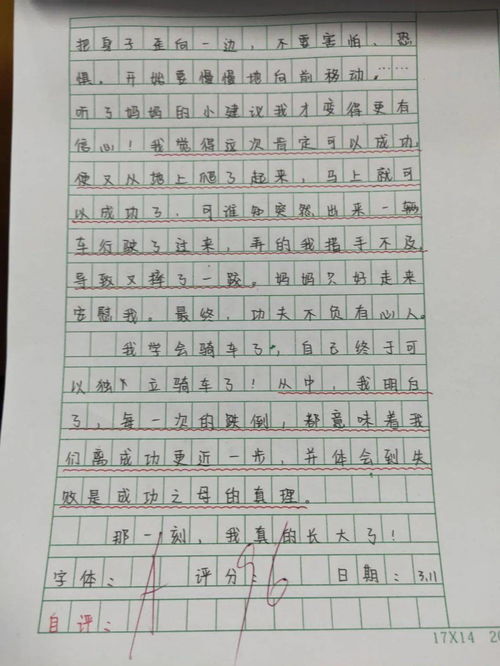 把身子歪向一边，不要害怕、恐
惧，开始要慢慢地向前移动，……
听了妈妈的小建议我才变得更有
信心！我觉得这次肯定可以成功，
便又从地上爬了起来，马上就可
以成功了，可谁知突然出来一辆
车行驶了过来，弄的我措手不及，
导致又摔了一跤。妈妈只好走来
安慰我。最终，功夫不负有心人。
我学会骑车了，自己终于可
以独立骑车了！从中，我明白
了，每一次的跌倒，都意味着我
们离成功更近一步，并体会到失
败是成功之母的真理。
那一刻，我真的长大了！
字体：A 评分：96 日期：3.11
自评：
17X14 20